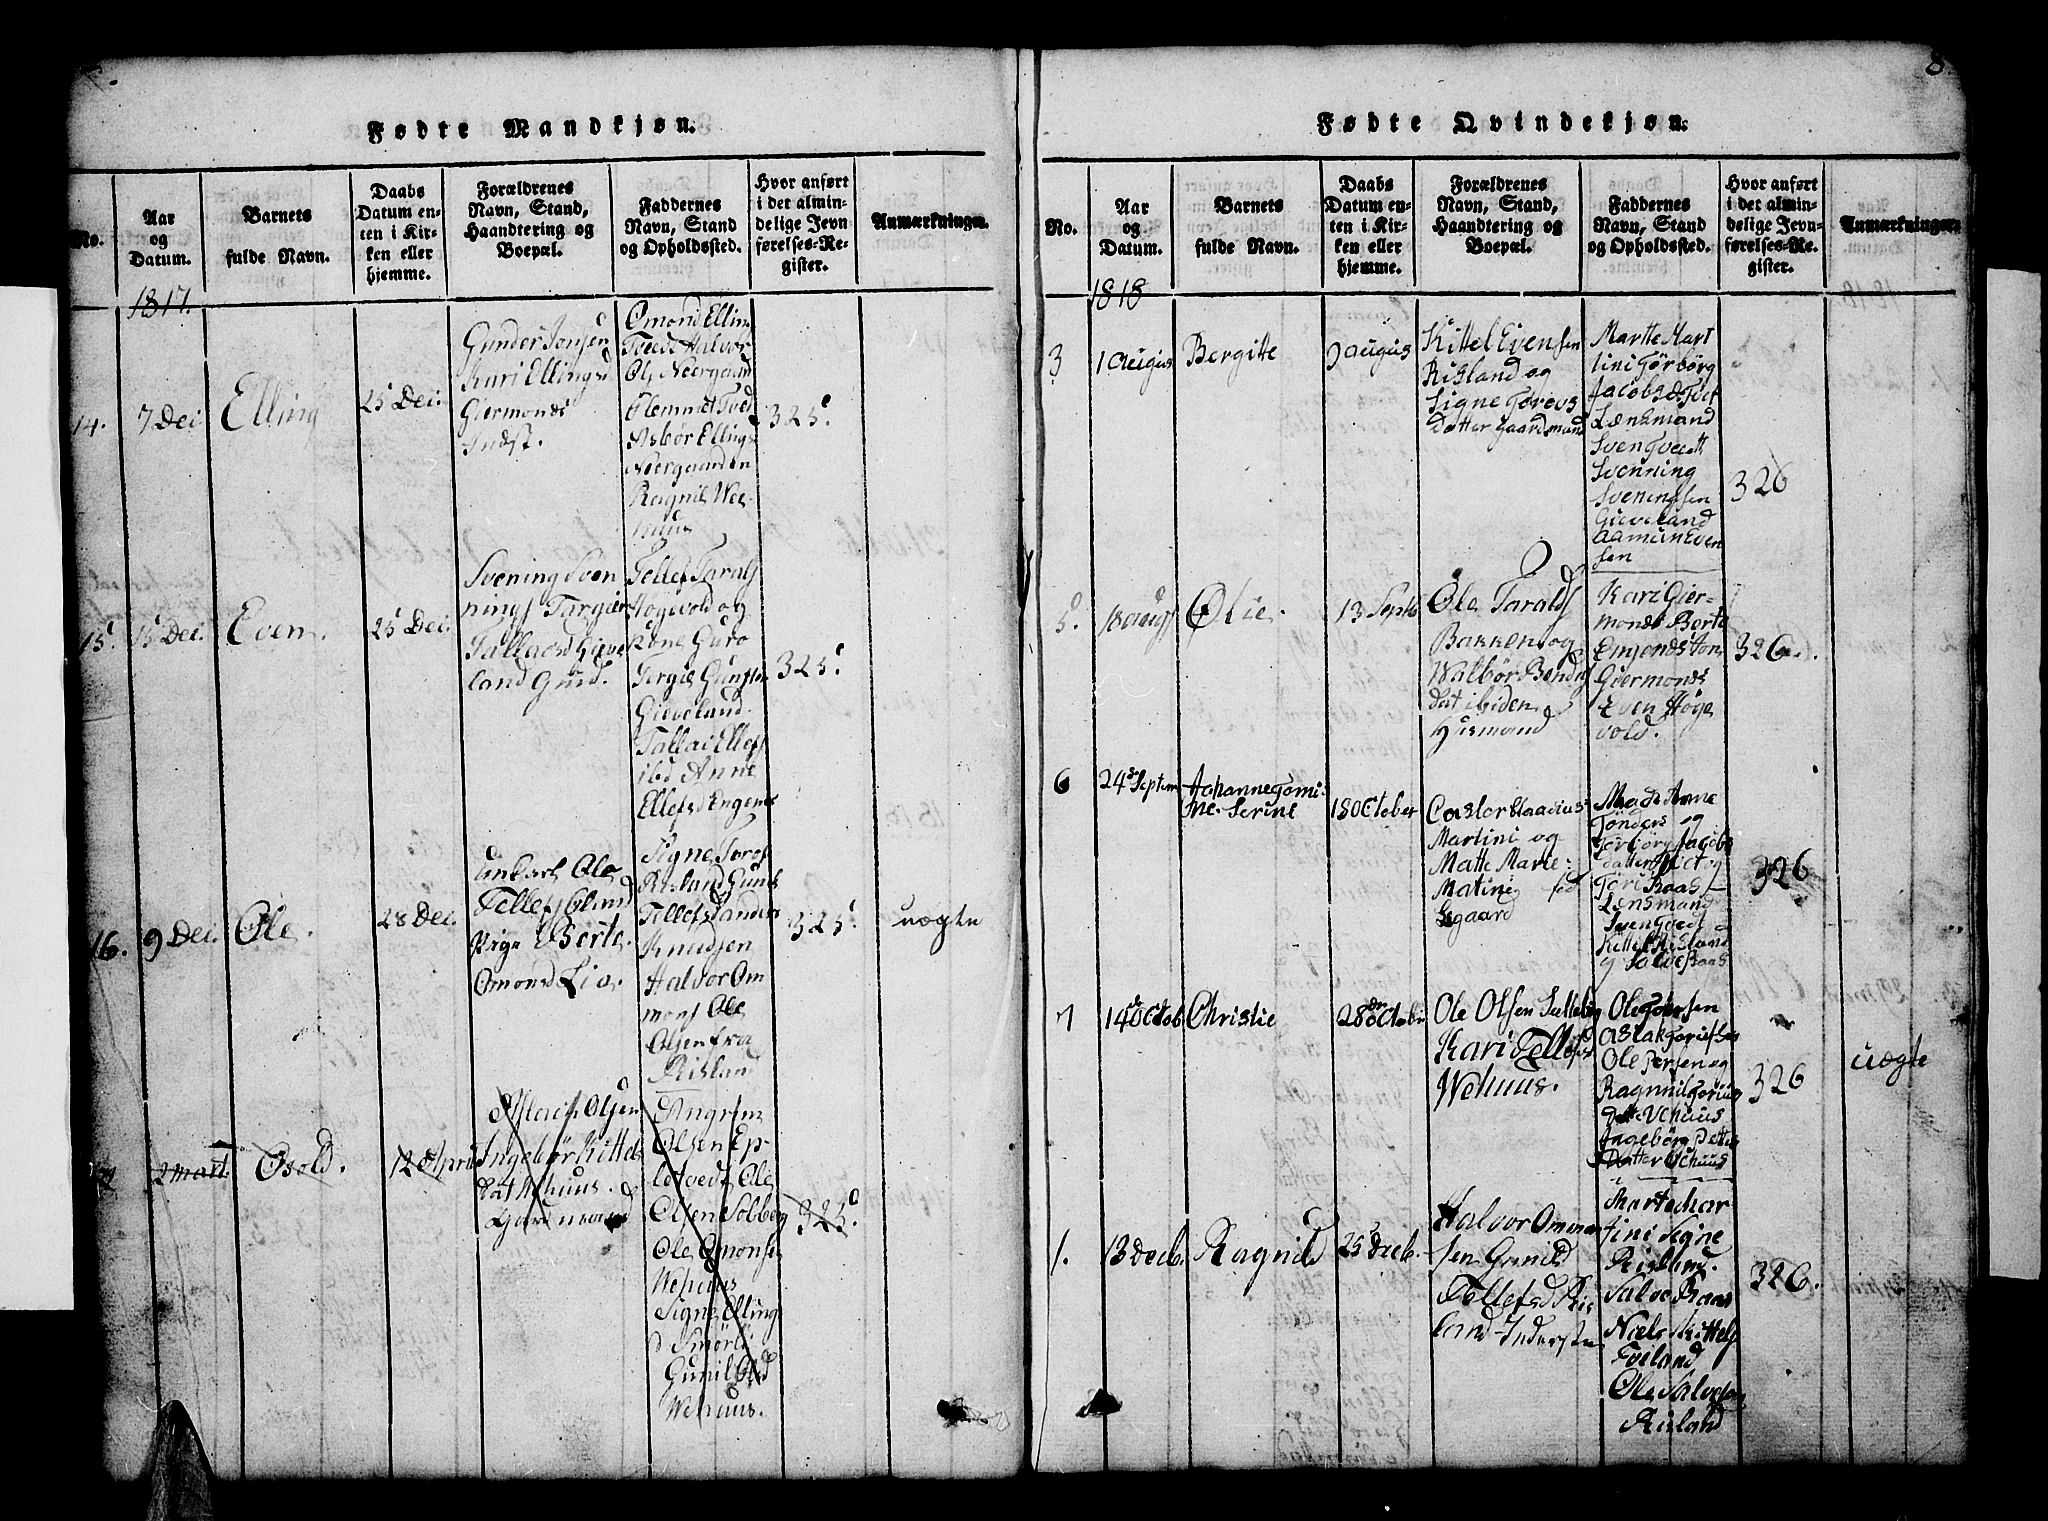 Fødte Mandkjøn.
No.
Aar
og
Datum.
Barnets
fulde Navn.
Daabs
Datum en-
ten i Kir-
ken eller
hjemme.
Forældrenes
Navn, Stand,
Haandtering og
Boepæl.
Faddernes
Navn, Stand
og Opholdssted.
Hvor anført
i det almin-
delige Jevn-
førelses-Re-
gister.
Anmærkninger.
1817.
14.
7 Dei
Elling
25 Dei.
Gunder Jonsen
Kari Ellingsd
Giermonds
Indst.
Omond Ellin
Tvedt Halvor
Ols Neergaard
Clemmet Tved
Asbør Ellings
Neergaarden
Ragnil Wee
huus
325.
15.
15 Dei.
Even.
25 Dei.
Svening Sven
nings Targier
Tallacsd Gieve
land Gund.
Tellef Taralf
Høgevold og
Kone Guro
Tergie Gunsten
Gieveland
Tallac Ellefs
ibd Anne
Ellefsd Engene
325.
16.
9 Dei.
Ole.
28 Dei.
Unkarl Ole
Tellefs
Pige Berte
Omonsd Lia.
Signe Torof
Risland Guni
Tellefsd
Knudsen
Halvor Om
mons Ole
Olsen fra
Risland
325.
uægte
2 Marti
Osold.
12 April
Aslach Olsen
Ingebør Kittels
dat Wehuus.
Olsen Ep-
letvedt Ole
Olsen Solberg
Ole Omonsen
Wehuus
Signe Elling
d Smørli
Gunil Olsd
Wehuus.
325.
8
Fødte Qvindekjøn.
No.
Aar
og
Datum.
Barnets
fulde Navn.
Daabs
Datum en-
ten i Kir-
ken eller
hjemme.
Forældrenes
Navn, Stand,
Haandtering og
Boepæl.
Faddernes
Navn, Stand
og Opholdssted.
Hvor anført
i det almin-
delige Jevn-
førelses-Re-
gister.
Anmærkninger.
1818
3
1 augus
Bergitte
9 augus
Kittel Evensen
Risland og
Signe Torevs
Datter gaardmand
Martte Mart
tini Törbörg
Jacobsd Tvet
Lænsmand
Sven Tvedt
Svenning
Sveningsen
Gieveland
Aamun Even
sen
326
5.
18 augs
Olie.
13 Septb
Ole Taralds
Bakken og
Walbör Bend
dat ibiden
Husmand
Kari Gier-
monds Berte
Emonds Jon
Giermonds
Even Høge
vold.
326.
6
24de Septem
Johanne Tomi-
ne Serine
18 October
Castor Claadius
Martini og
Matte Marie
Matine fød
Segaard
Mads Anne
Tönders og
Torborg Jacobs
datter Tvet og
Töri Raas
Lensmand
Sven Tved
Kittel Risland
og Salve Raas
326
7
14de Octob
Christie
28de Octobr
Ole Olsen
Kari Tellefsd
Wehuus.
Ole Torsen
Aslak
Ole Persen og
Ragnnil
Vehuus
Ingebörg Petter
Datter Vehuus
326
uægte
1.
13 Decb.
Ragnild
25 Decb.
Halvor Ommon
sen Gunild
Tellefsd Ris
land Inderste
Marte Mar
tini Signe
Risland.
Salve Raas
Niels Kittels
Foiland
Ole Salvesen
Risland
326.